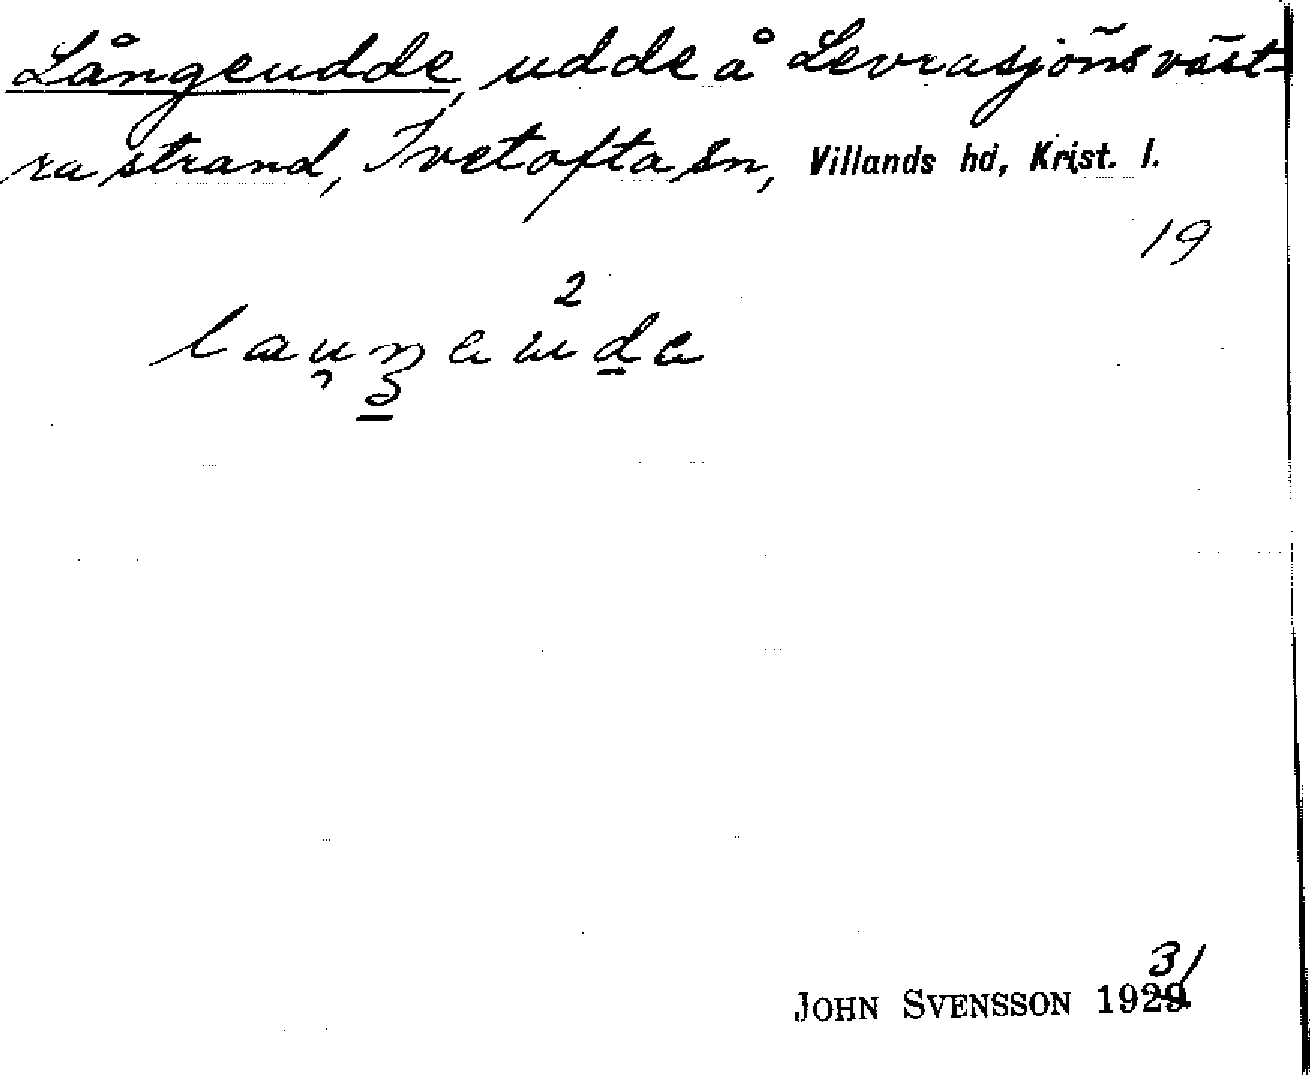 Långeudde, udde å Levrasjöns väst-
ra strand, Ivetofta sn, Villands hd, Krist. l.
19
2
JOHN SVENSSON 1929
31